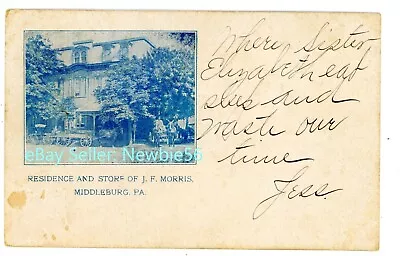 Where Sister
Elizabeth eat
slees and
waste our
time
Jess.
eBay Seller Newbie56
RESIDENCE AND STORE OF J. F. MORRIS,
MIDDLEBURG, PA.